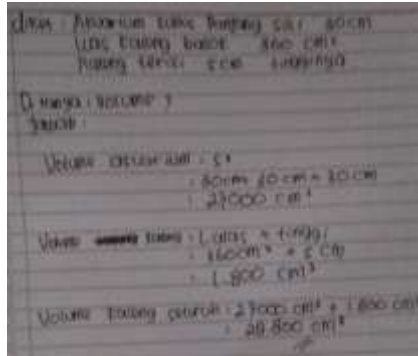 Aquarium panjang sisi 30cm
Luas kaleng 360 cm²
kaleng terisi 5cm tingginya
Ditanya : volume ?
Jawab :
Volume aquarium : s³
: 30cm 30cm × 30cm
: 27000 cm³
Volume kaleng : L alas × tinggi
: 360cm² × 5 cm
: 1.800 cm³
Volume kaleng seluruh : 27000 cm³ + 1800 cm³
: 28.800 cm³